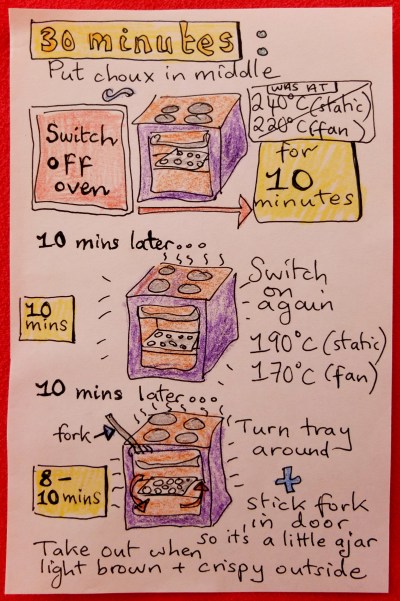 30 minutes :
Put choux in middle
Switch
off
oven
WAS AT
240°C (static)
220°C (fan)
for
10
minutes
10 mins later...
10
mins
Switch
on
again
190°C (static)
170°C (fan)
10 mins later...
fork
8-
10 mins
Turn tray
around
+
stick fork
in door
so it's a little ajar
Take out when
light brown + crispy outside